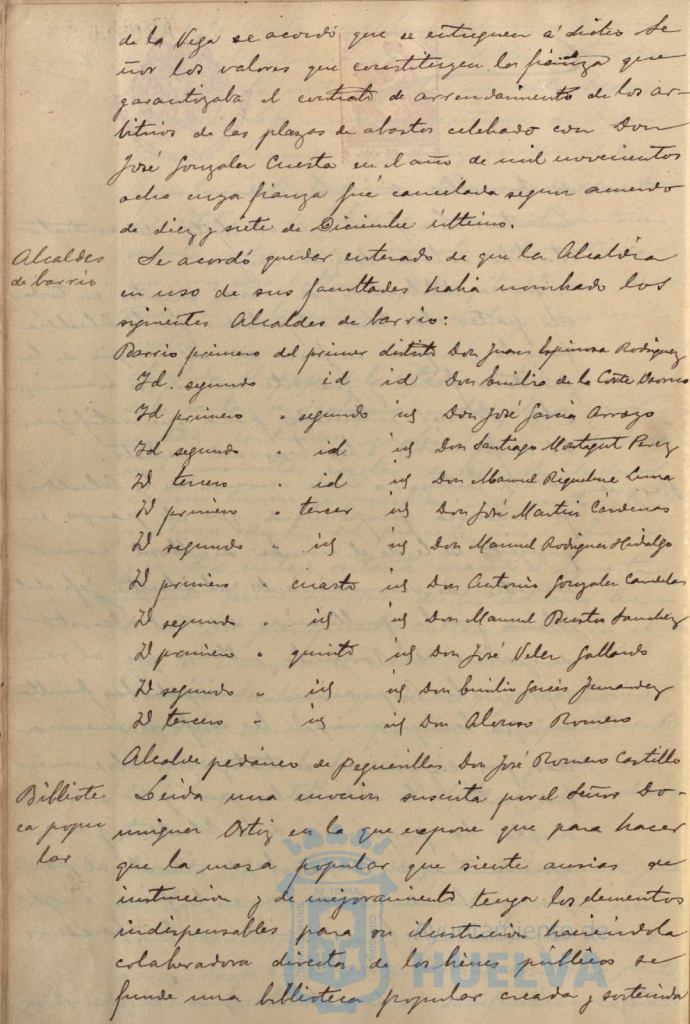 de la Vega se acordó que se entreguen á dicho Se
ñor los valores que constituyen la fianza que
garantizaba el contrato de arrendamiento de los ar-
bitrios de las plazas de abastos celebrado con Don
José Gonzalez Cuesta en el año de mil novecientos
ocho cuya fianza fué cancelada segun acuerdo
de diez y siete de Diciembre último.
Alcaldes
de barrio
Se acordó quedar enterado de que la Alcaldia
en uso de sus facultades habia nombrado los
siguientes Alcaldes de barrio:
Barrio primero del primer distrito Don Juan Espinosa Rodriguez
Id. segundo id id Don Emilio de la Corte
Id primero " segundo id Don José Garcia Arroyo
Id segundo " id id Don Santiago Montagut Perez
Id tercero " id id Don Manuel Riquelme Luna
Id primero " tercer id Don José Martin Cárdenas
Id segundo " id id Don Manuel Rodriguez Hidalgo
Id primero " cuarto id Don Antonio Gonzalez Candelas
Id segundo " id id Don Manuel Bustos Sanchez
Id primero " quinto id Don José Velez Gallardo
Id segundo " id id Don Emilio Garcés
Id tercero " id id Don Alonso Romero
Alcalde pedáneo de Peguerillas Don José Romero Castillo
Bibliote
ca popu
lar
Leida una mocion suscrita por el Señor Do-
minguez Ortiz en la que expone que para hacer
que la masa popular que siente ansias de
instruccion y de mejoramiento tenga los elementos
indispensables para su ilustracion haciendola
colaboradora directa de los bienes públicos se
funde una biblioteca popular creada y sostenida
Ayuntamiento de
HUELVA